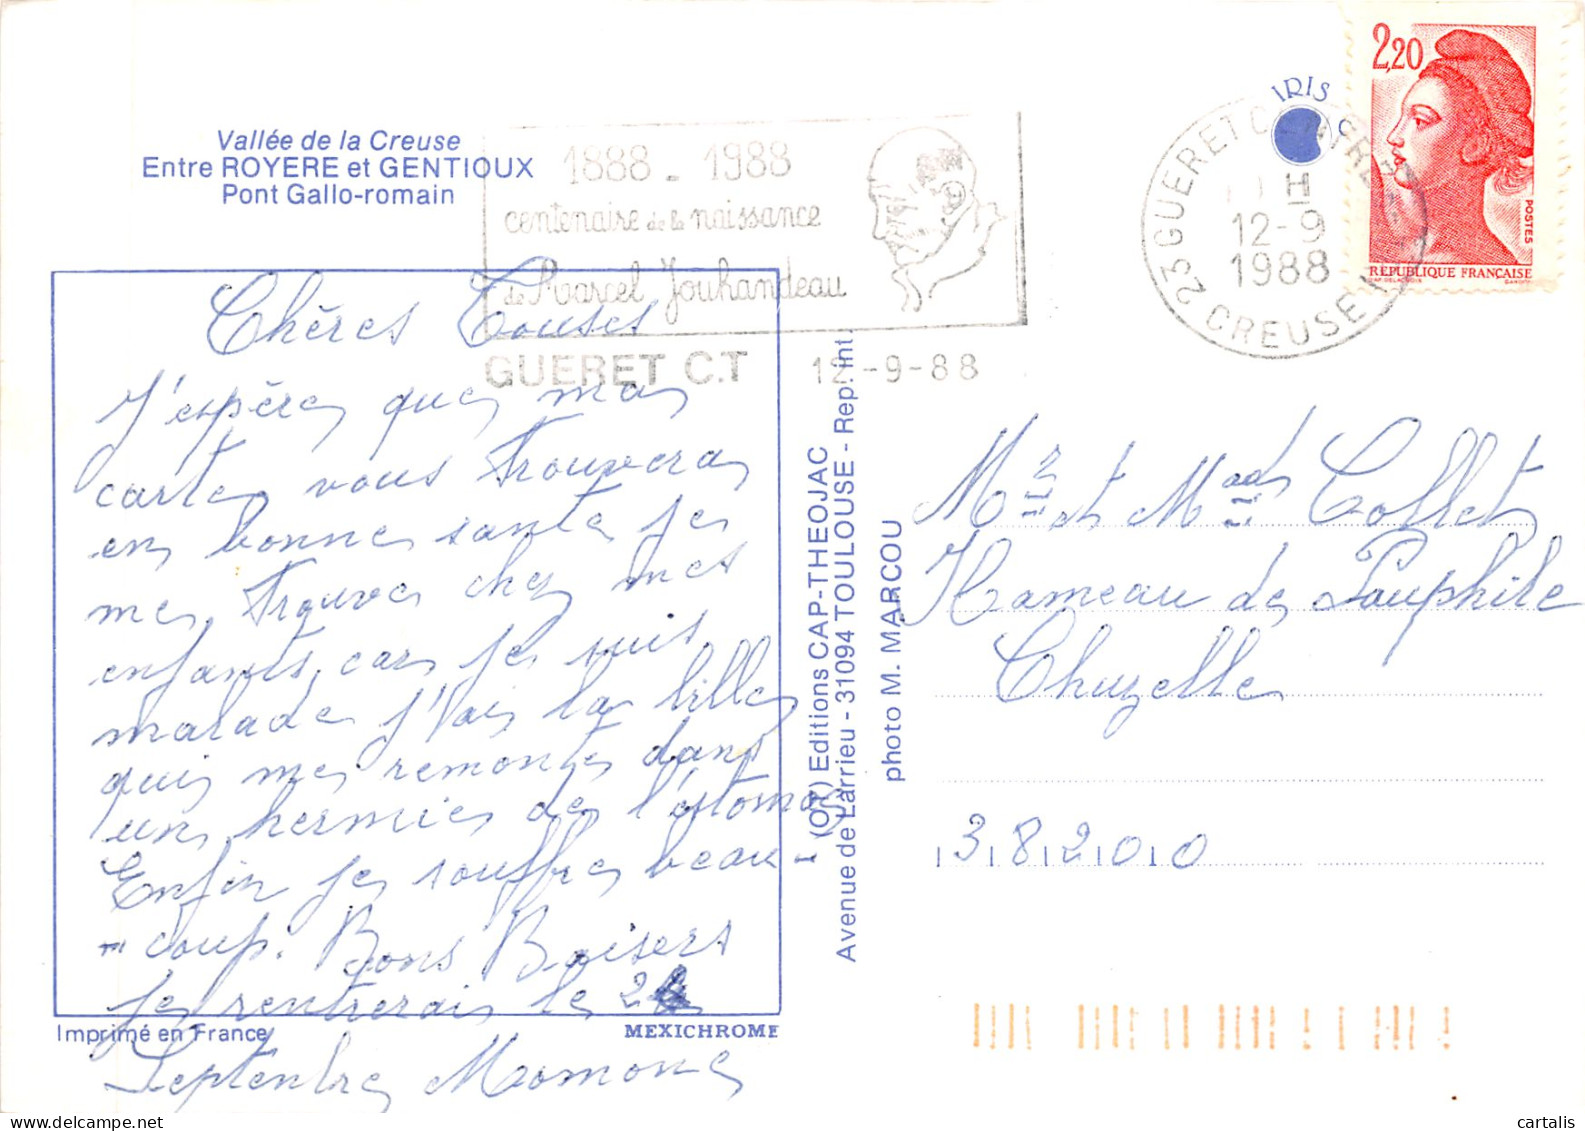 Vallée de la Creuse
Entre ROYERE et GENTIOUX
Pont Gallo-romain
1888 - 1988
centenaire de la naissance
de Marcel Jouhandeau
GUERET C.T 12-9-88
IRIS
23 GUERET
H
12-9
1988
CREUSE
2,20
POSTES
REPUBLIQUE FRANÇAISE
Chères Tousets
J'espère que ma
carte vous trouvera
en bonne santé je
me trouve chez mes
enfants car je suis
malade j'ai la bille
qui me remonte dans
un hermie de l'estomac
Enfin je souffre beau-
-coup. Bons Baisers
je rentrerais le
Septembre Momone
Imprimé en France
MEXICHROME
Editions CAP-THEOJAC
Avenue de Larrieu - 31094 TOULOUSE - Rep. int.
photo M. MARCOU
Mr et Mad Collet
Hameau de
Chuzelle
38200
cartalis